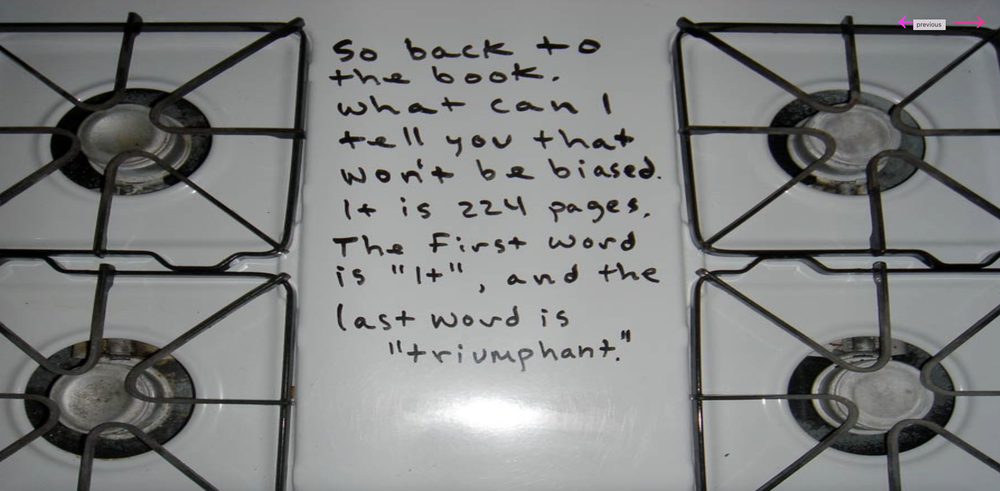 previous
So back to
the book.
What can I
tell you that
won't be biased.
It is 224 pages.
The First word
is "It", and the
last word is
"triumphant."